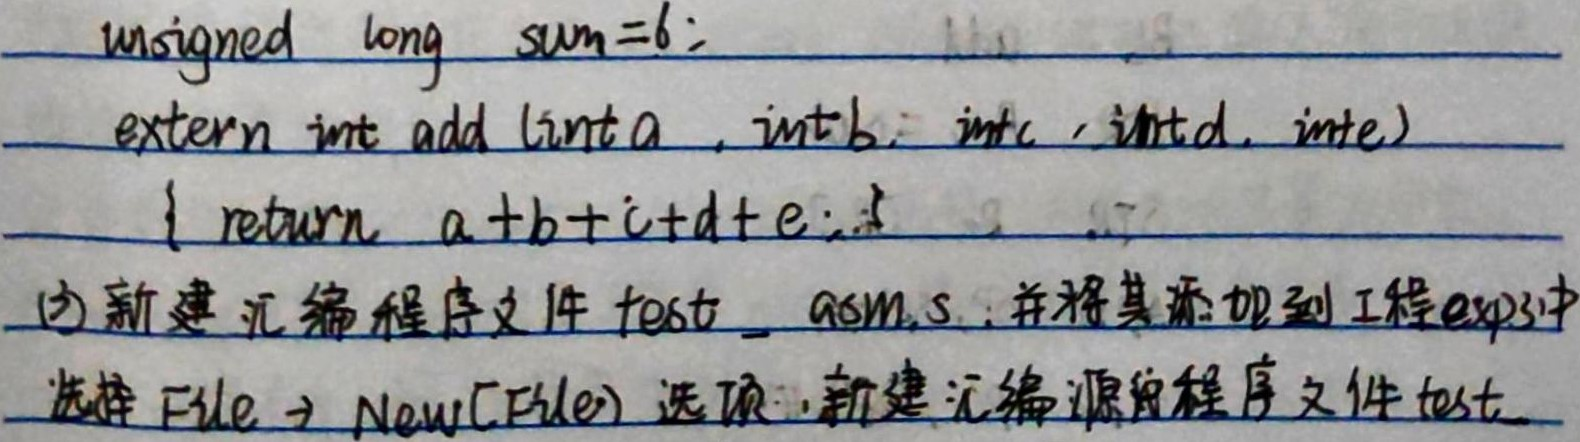 unsigned long sum=6;
extern int add (int a , int b, int c , int d, int e)
{ return a+b+c+d+e; }
(3) 新建汇编程序文件 test _ asm.s , 并将其添加到工程exp3中
选择 File → New(File) 选项, 新建汇编源的程序文件 test_